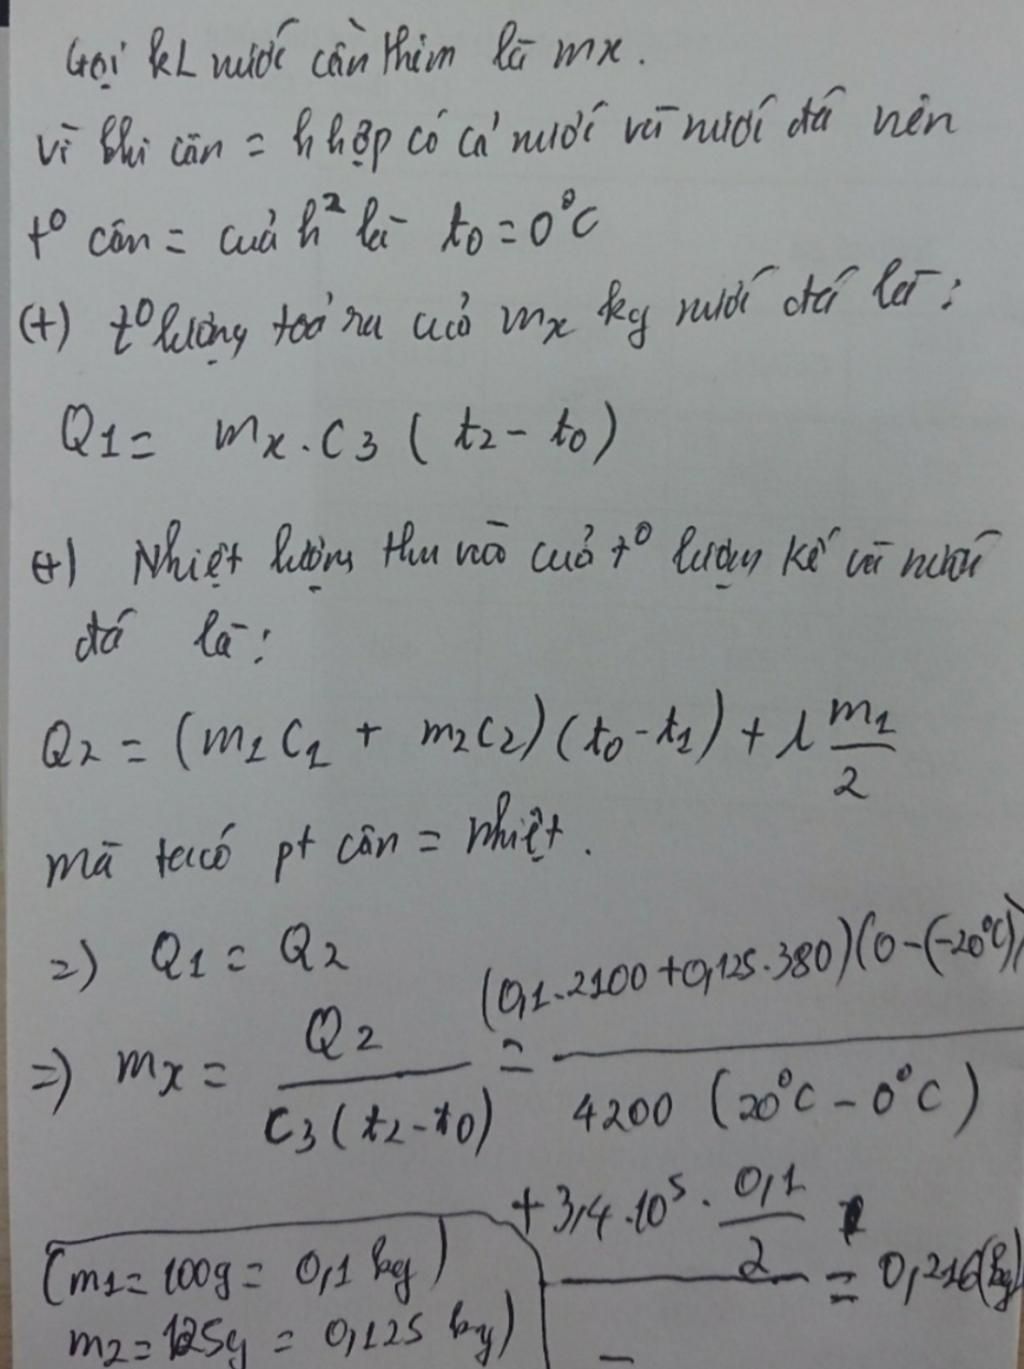 Gọi kL nước cần thêm là mx.
vì khi cân = h hợp có cả nước và nước đá nên
t⁰ cân = của h² là t0 = 0°C
(+) t⁰ lượng toả ra của mx kg nước đá là:
Q1 = mx.C3 (t2 - t0)
(+) Nhiệt lượng thu vào của t⁰ lượng kế và nước
đá là:
Q2 = (m1C1 + m2C2)(t0 - t1) + λ m1/2
mà ta có pt cân = nhiệt.
=) Q1 = Q2
=) mx = Q2 / C3(t2 - t0) = (0,1.2100 + 0,125.380)(0 - (-20°C)) / 4200 (20°C - 0°C)
+ 3,4.10⁵ . 0,1/2 = 0,216(kg)
(m1 = 100g = 0,1 kg)
m2 = 125g = 0,125 kg)